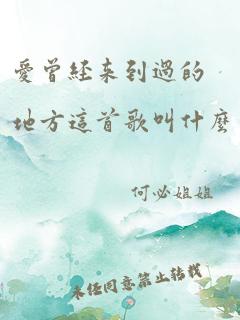 愛曾经来到過的
地方這首歌叫什麼
何必姐姐
未经同意禁止转载